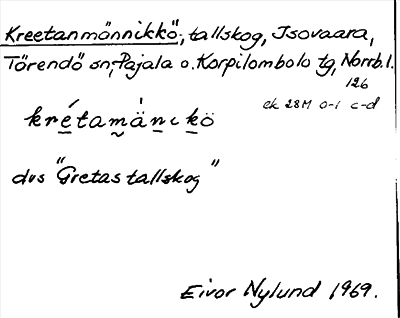 Kreetanmännikkö, tallskog, Isovaara,
Tärendö sn, Pajala o. Korpilombolo tg, Norrb. l.
126
ek 28M 0-1 c-d
krétamänckö
dvs "Gretas tallskog"
Eivor Nylund 1969.